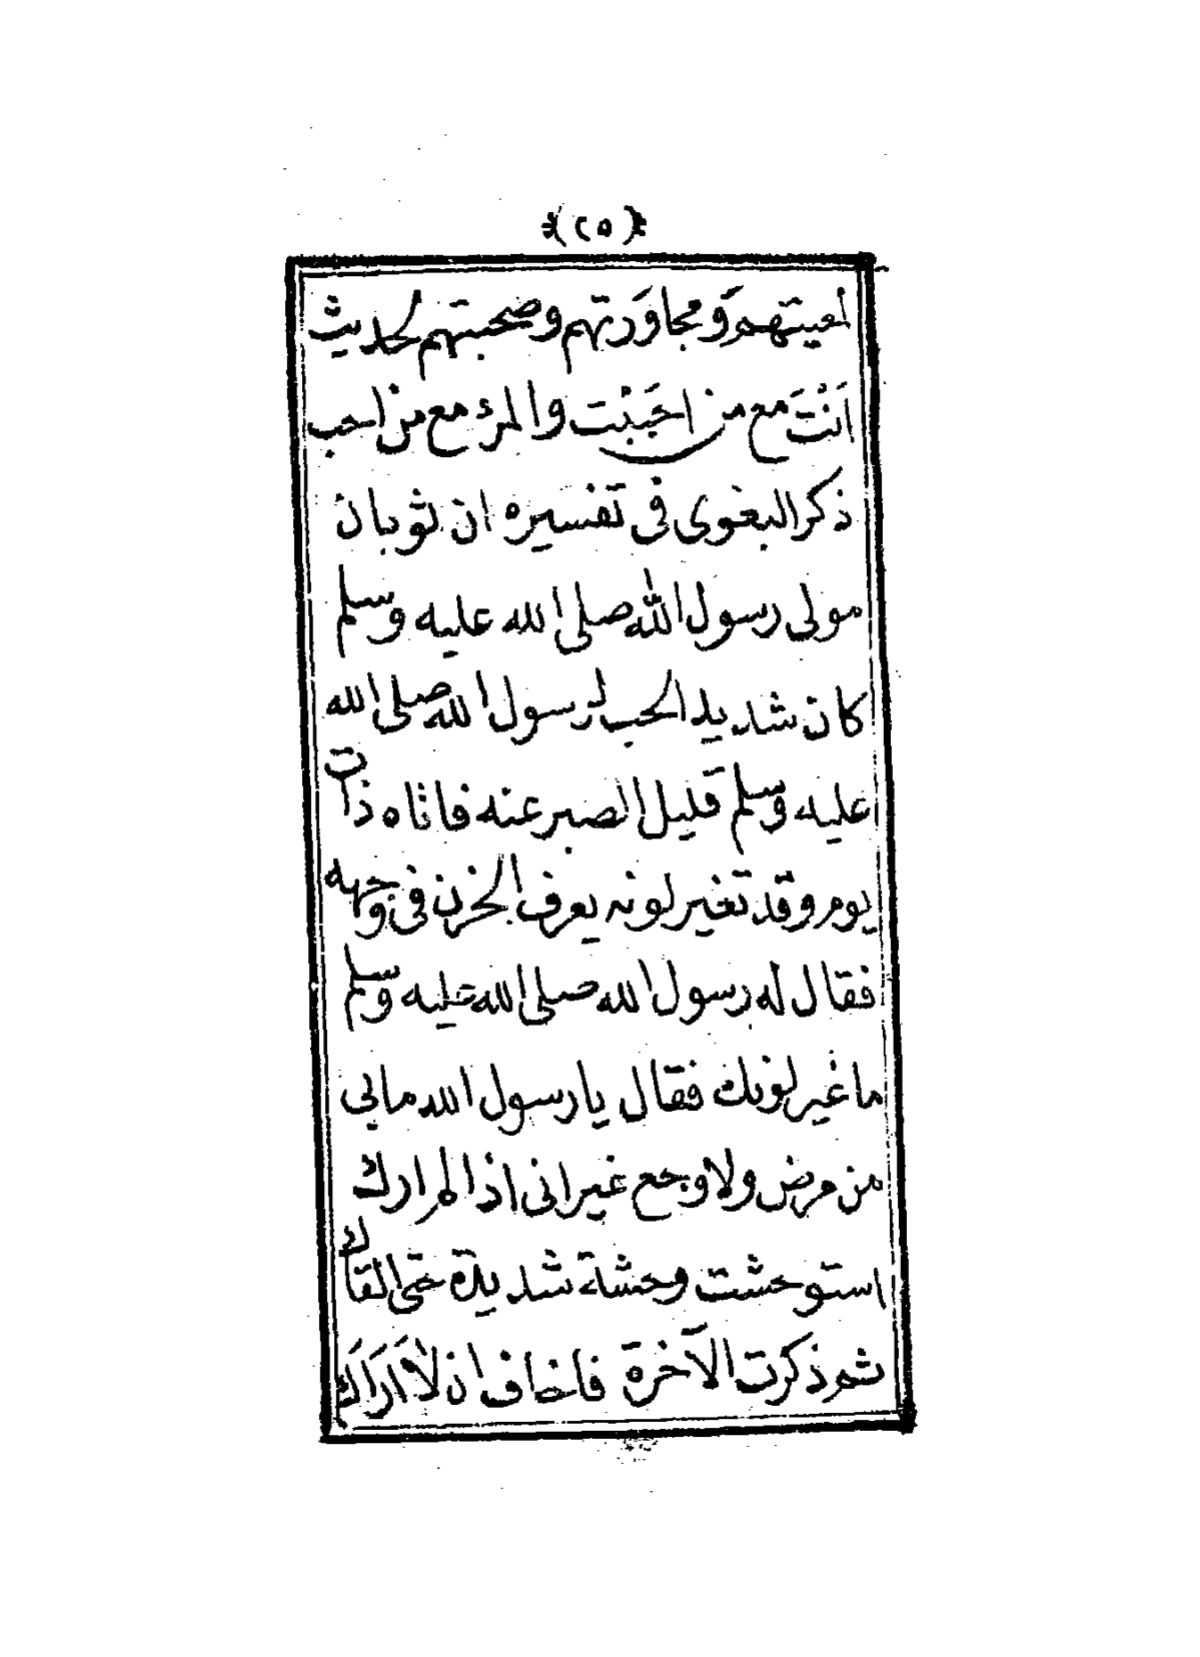 ﴿(٢٥)﴾
لمعيتهم وَمجاوَرتهم وصحبتهم لحديث
اَنْتَ مع من احَبَبْت والمرء مع من احب
ذكر البغوى فى تفسيره ان ثوبان
مولى رسول الله صلى الله عليه وسلم
كان شديد الحب لرسول الله صلى الله
عليه وسلم قليل الصبر عنه فاتاه ذات
يوم وقد تغير لونه يعرف الحزن فى وجهه
فقال له رسول الله صلى الله عليه وسلم
ما غير لونك فقال يا رسول الله مابى
من مرض ولا وجع غير انى اذا لم ارك
استوحشت وحشة شديدة حتى القاك
ثم ذكرت الآخرة فاخاف ان لَا اَرَاكَ